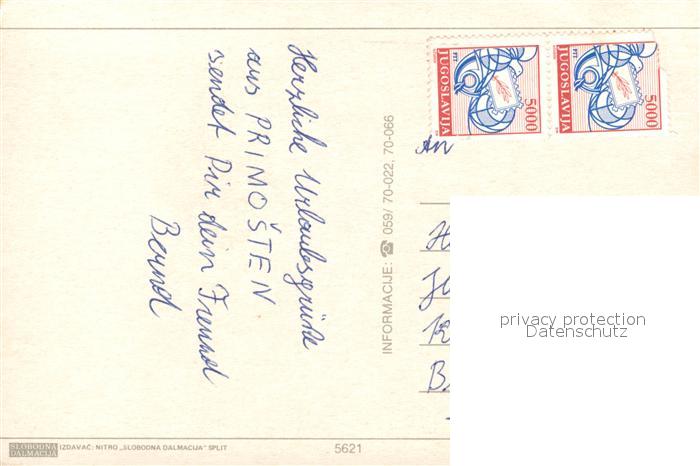 Herzliche Urlaubsgrüße
aus PRIMOŠTEN
sendet Dir dein Freund
Bernd
INFORMACIJE: ☎ 059/ 70-022, 70-066
PTT
JUGOSLAVIJA
5000
PTT
JUGOSLAVIJA
5000
An
H
K
B
privacy protection
Datenschutz
SLOBODNA
DALMACIJA
IZDAVAČ: NITRO „SLOBODNA DALMACIJA" SPLIT
5621